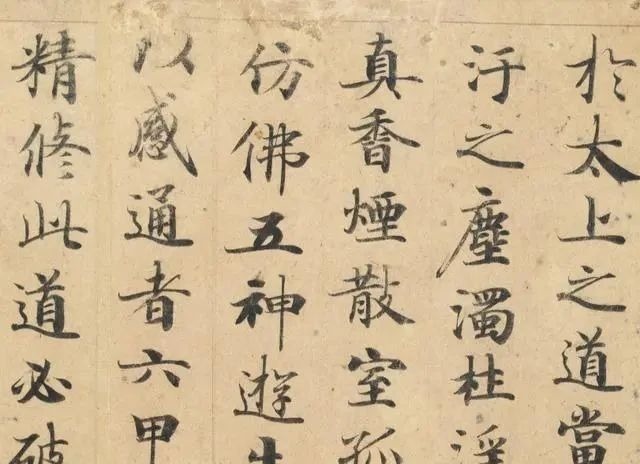 於太上之道當
汙之塵濁柱淫
真香煙散室孤
仿佛五神遊生
以感通者六甲
精修此道必破